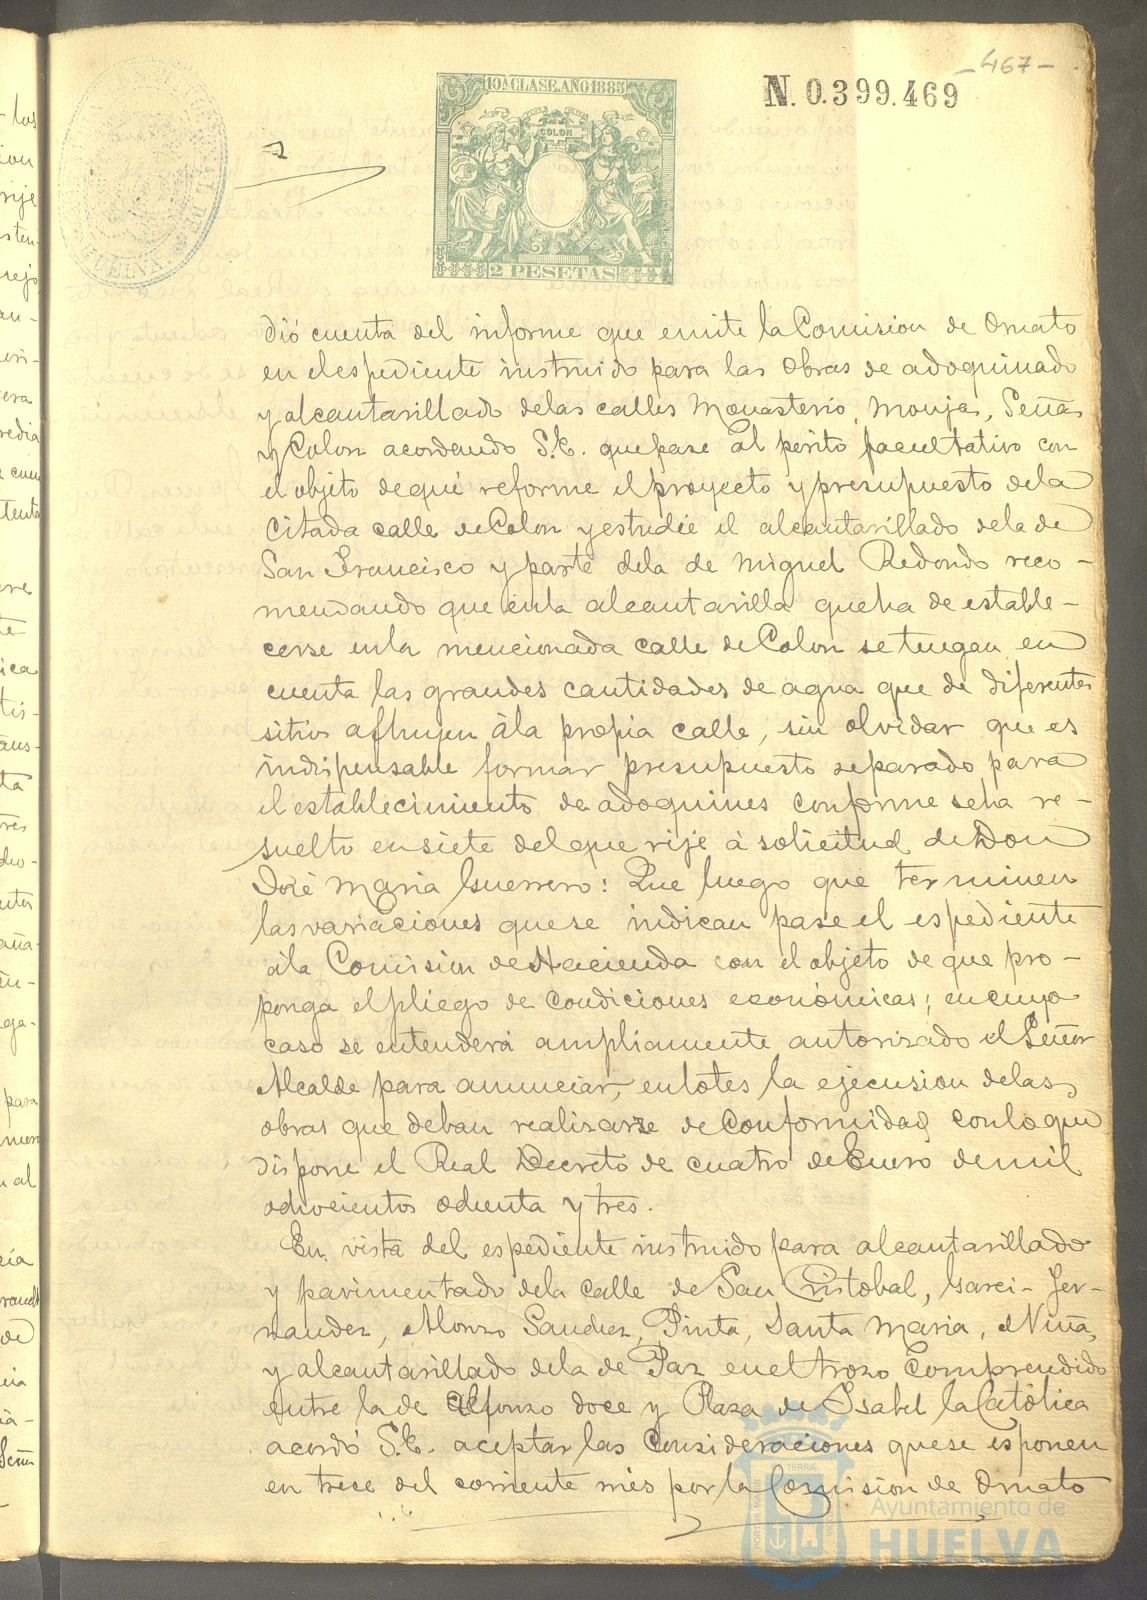 -467-
10ª CLASE. AÑO 1885
N. 0.399.469
COLON
HUELVA
2 PESETAS
dió cuenta del informe que emite la Comision de Ornato
en el espediente instruido para las obras de adoquinado
y alcantarillado de las calles Monasterio, Monjas, Señas
y Colon acordando S.E. que pase al périto facultativo con
el objeto de qué reforme el proyecto y presupuesto de la
citada calle de Colon y estudie el alcantarillado de la de
San Francisco y parte de la de Miguel Redondo reco-
mendando que en la alcantarilla que ha de estable-
cerse en la mencionada calle de Colon se tengan en
cuenta las grandes cantidades de agua que de diferentes
sitios afluyen á la propia calle, sin olvidar que es
indispensable formar presupuesto separado para
el establecimiento de adoquines conforme se ha re-
suelto en siete del que rije á solicitud de Don
José Maria Guerrero: Que luego que terminen
las variaciones que se indican pase el espediente
á la Comision de Hacienda con el objeto de que pro-
ponga el pliego de condiciones económicas; en cuyo
caso se entenderá ampliamente autorizado el Señor
Alcalde para anunciar, en lotes la ejecusion de las
obras que deban realizarse de conformidad con lo que
dispone el Real Decreto de cuatro de Enero de mil
ochocientos ochenta y tres.
En vista del espediente instruido para alcantarillado
y pavimentado de la calle de San Cristobal, Garci-Fer-
nandez, Alonzo Sanchez, Pinta, Santa Maria, Niña,
y alcantarillado de la de Paz en el trozo comprendido
entre la de Alfonzo doce y Plaza de Isabel la Católica
acordó S.E. aceptar las consideraciones que se esponen
en trece del corriente més por la Comision de Ornato
Ayuntamiento de
HUELVA